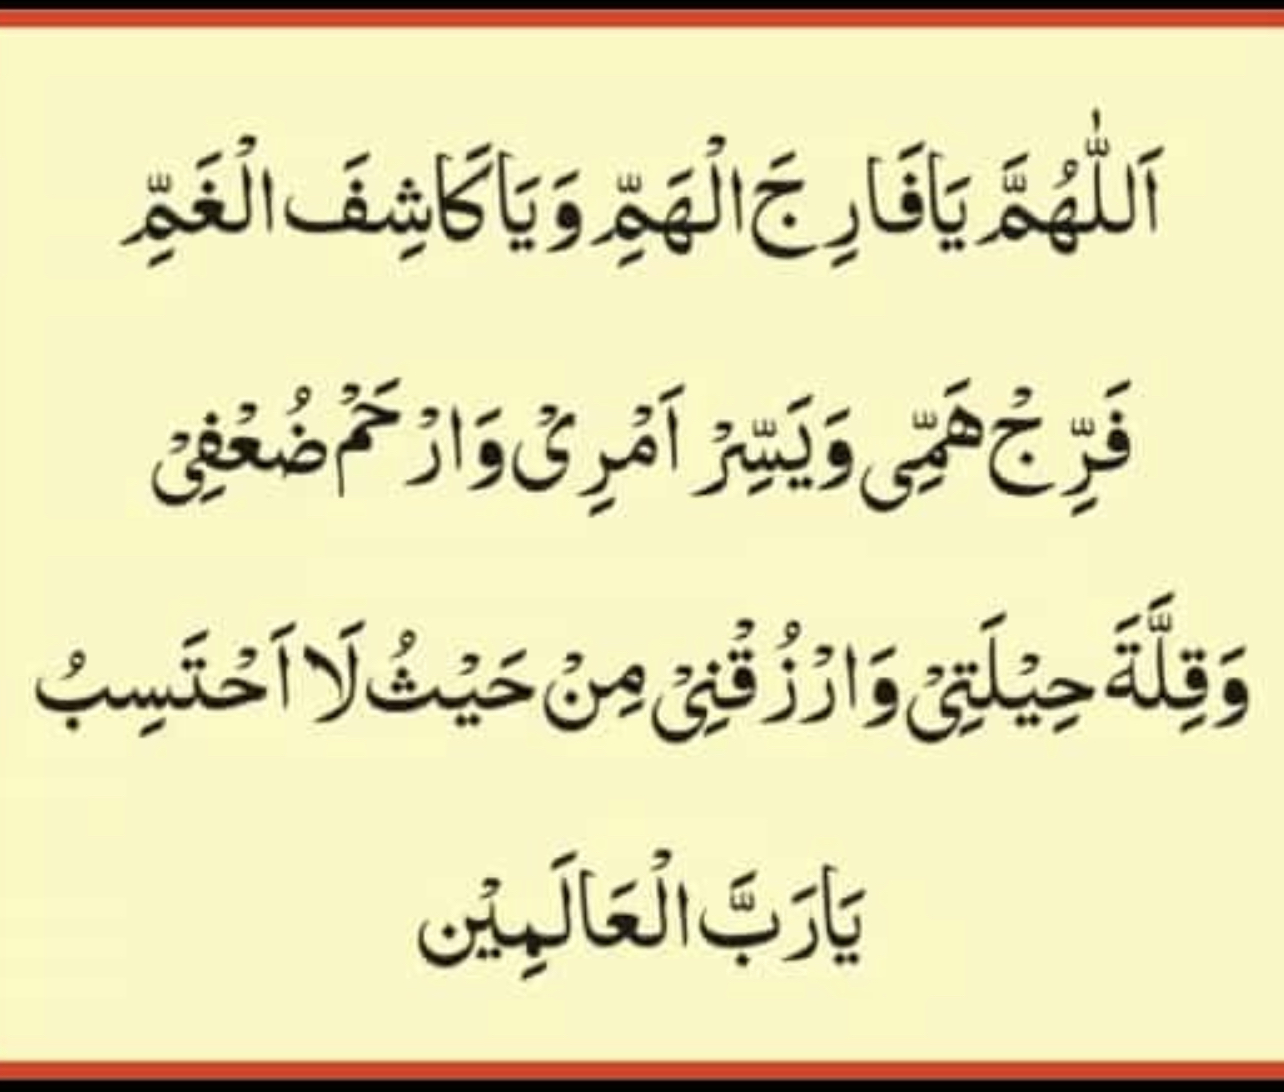 اَللّٰهُمَّ يَافَارِجَ الْهَمِّ وَيَاكَاشِفَ الْغَمِّ
فَرِّجْ هَمِّى وَيَسِّرْ اَمْرِىْ وَارْحَمْ ضُعْفِىْ
وَقِلَّةَ حِيْلَتِىْ وَارْزُقْنِىْ مِنْ حَيْثُ لَا اَحْتَسِبُ
يَارَبَّ الْعَالَمِيْن